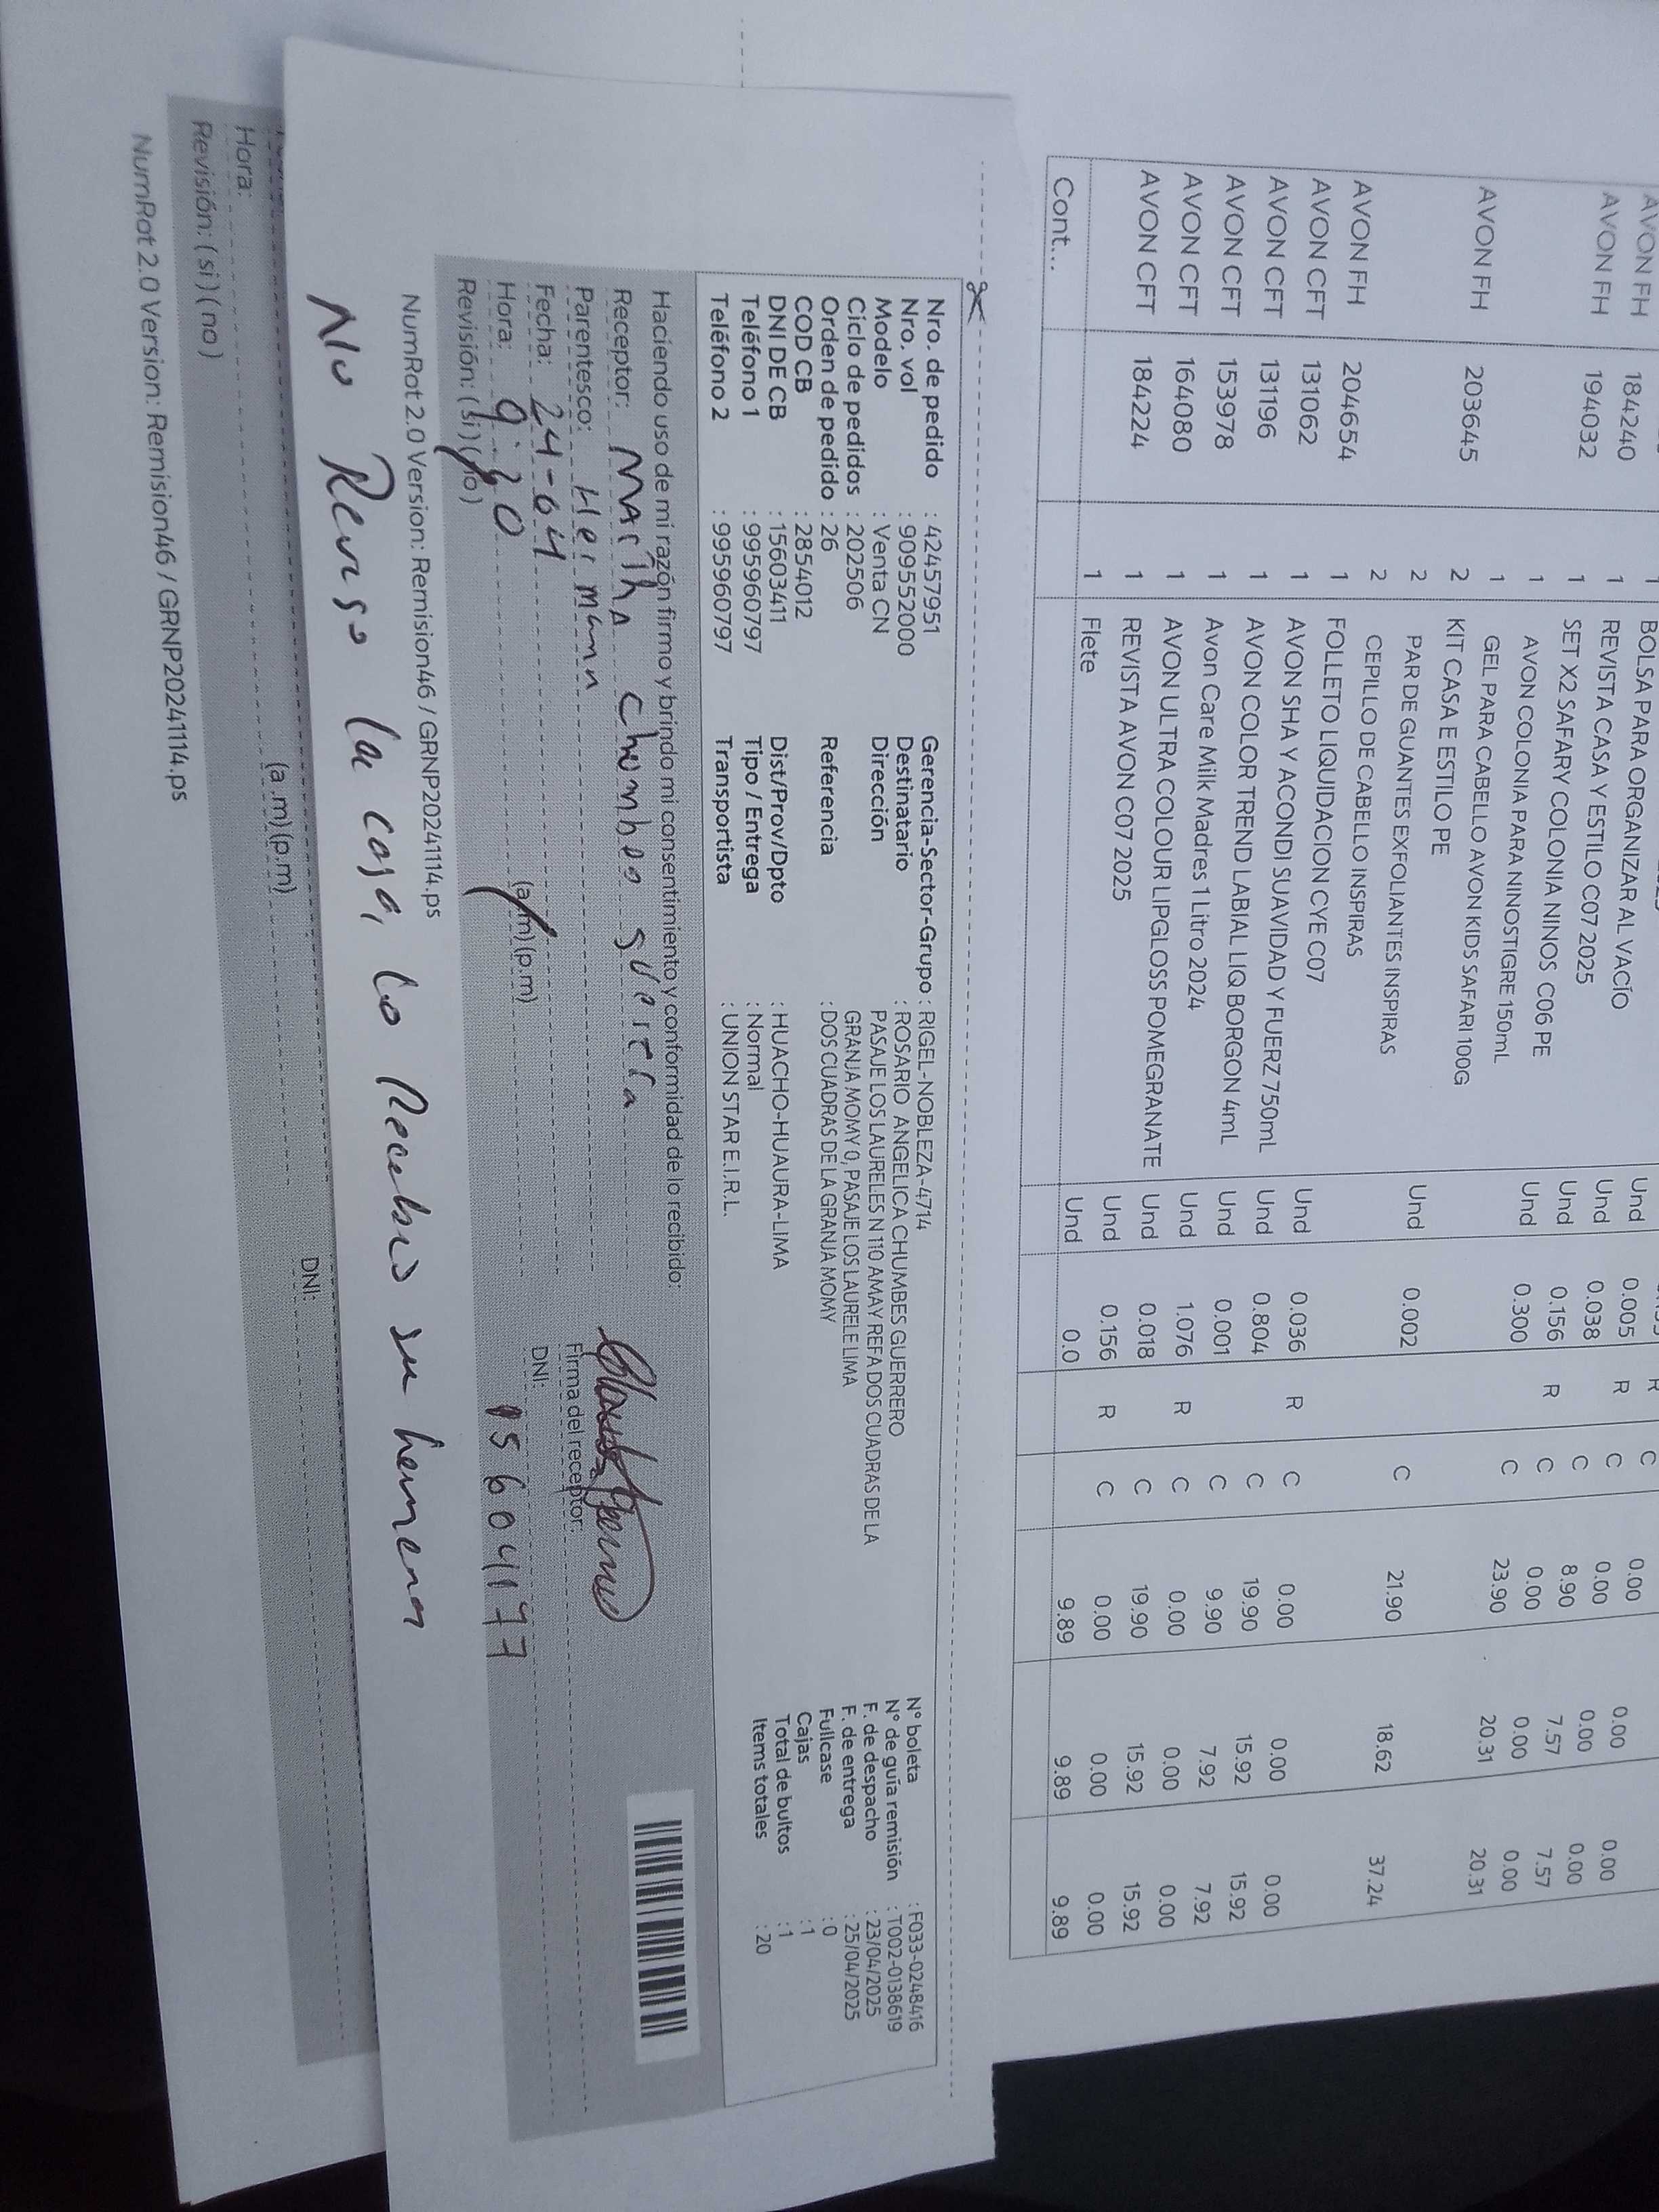 AVON FH 184240 1 BOLSA PARA ORGANIZAR AL VACÍO Und 0.005 R C 0.00 0.00 0.00
AVON FH 194032 1 REVISTA CASA Y ESTILO C07 2025 Und 0.038 R C 0.00 0.00 0.00
1 SET X2 SAFARY COLONIA NINOS C06 PE Und 0.156 C 8.90 7.57 7.57
1 AVON COLONIA PARA NINOSTIGRE 150mL Und 0.300 R C 0.00 0.00 0.00
AVON FH 203645 1 GEL PARA CABELLO AVON KIDS SAFARI 100G C 23.90 20.31 20.31
2 KIT CASA E ESTILO PE
2 PAR DE GUANTES EXFOLIANTES INSPIRAS Und 0.002 C 21.90 18.62 37.24
AVON FH 204654 2 CEPILLO DE CABELLO INSPIRAS
AVON CFT 131062 1 FOLLETO LIQUIDACION CYE C07 Und 0.036 R C 0.00 0.00 0.00
AVON CFT 131196 1 AVON SHA Y ACONDI SUAVIDAD Y FUERZ 750mL Und 0.804 C 19.90 15.92 15.92
AVON CFT 153978 1 AVON COLOR TREND LABIAL LIQ BORGON 4mL Und 0.001 C 9.90 7.92 7.92
AVON CFT 164080 1 Avon Care Milk Madres 1 Litro 2024 Und 1.076 R C 0.00 0.00 0.00
AVON CFT 184224 1 AVON ULTRA COLOUR LIPGLOSS POMEGRANATE Und 0.018 C 19.90 15.92 15.92
1 REVISTA AVON C07 2025 Und 0.156 R C 0.00 0.00 0.00
Cont... 1 Flete Und 0.0 9.89 9.89 9.89
Nro. de pedido : 42457951 Gerencia-Sector-Grupo : RIGEL-NOBLEZA-4714 N° boleta : F033-0248416
Nro. vol : 909552000 Destinatario : ROSARIO ANGELICA CHUMBES GUERRERO N° de guía remisión : T002-0138619
Modelo : Venta CN Dirección PASAJE LOS LAURELES N 110 AMAY REFA DOS CUADRAS DE LA F. de despacho : 23/04/2025
Ciclo de pedidos : 202506 GRANJA MOMY 0, PASAJE LOS LAURELE LIMA F. de entrega : 25/04/2025
Orden de pedido : 26 Referencia : DOS CUADRAS DE LA GRANJA MOMY Fullcase : 0
COD CB : 2854012 Cajas : 1
DNI DE CB : 15603411 Dist/Prov/Dpto : HUACHO-HUAURA-LIMA Total de bultos : 1
Teléfono 1 : 995960797 Tipo / Entrega : Normal Items totales : 20
Teléfono 2 : 995960797 Transportista : UNION STAR E.I.R.L.
Haciendo uso de mi razón firmo y brindo mi consentimiento y conformidad de lo recibido:
Receptor: MArThA Chumbes
Parentesco: Hermana Firma del receptor:
Fecha: 24-04 DNI: 15604177
Hora: 9:20 (a.m) (p.m)
Revisión: (si) (no)
NumRot 2.0 Version: Remision46 / GRNP20241114.ps
No Reviso la caja, lo Recibio su hermana
DNI:
Hora: (a.m) (p.m)
Revisión: (si) (no)
NumRot 2.0 Version: Remision46 / GRNP20241114.ps